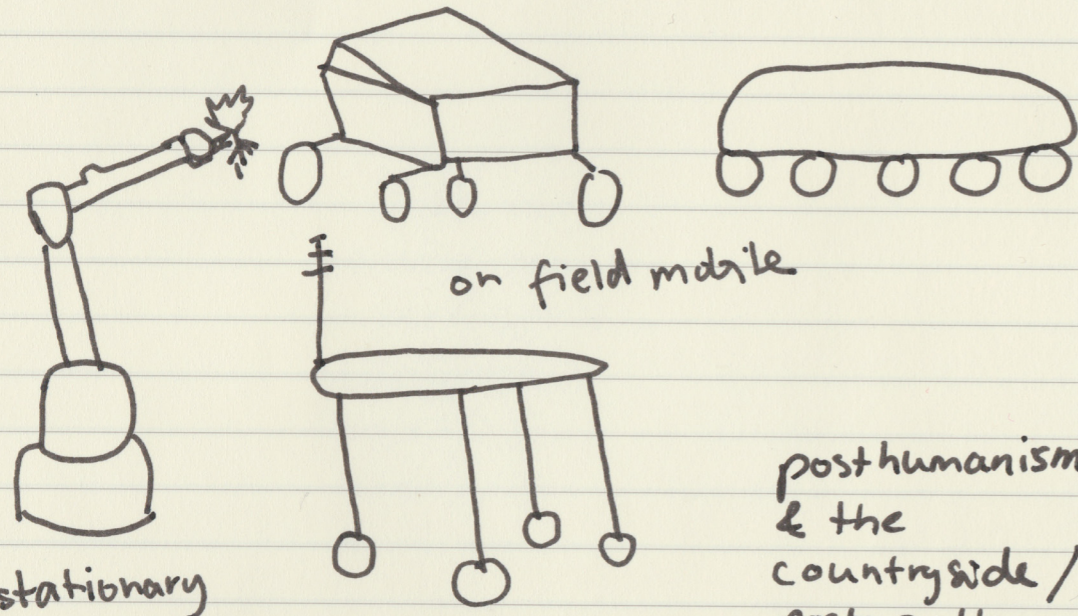 on field mobile
stationary
posthumanism
& the
countryside /